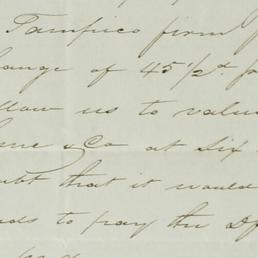 Tampico firm
ange of 45 1/2d
llow us to value
ne & Co at Six
ubt that it would
nds to pay the